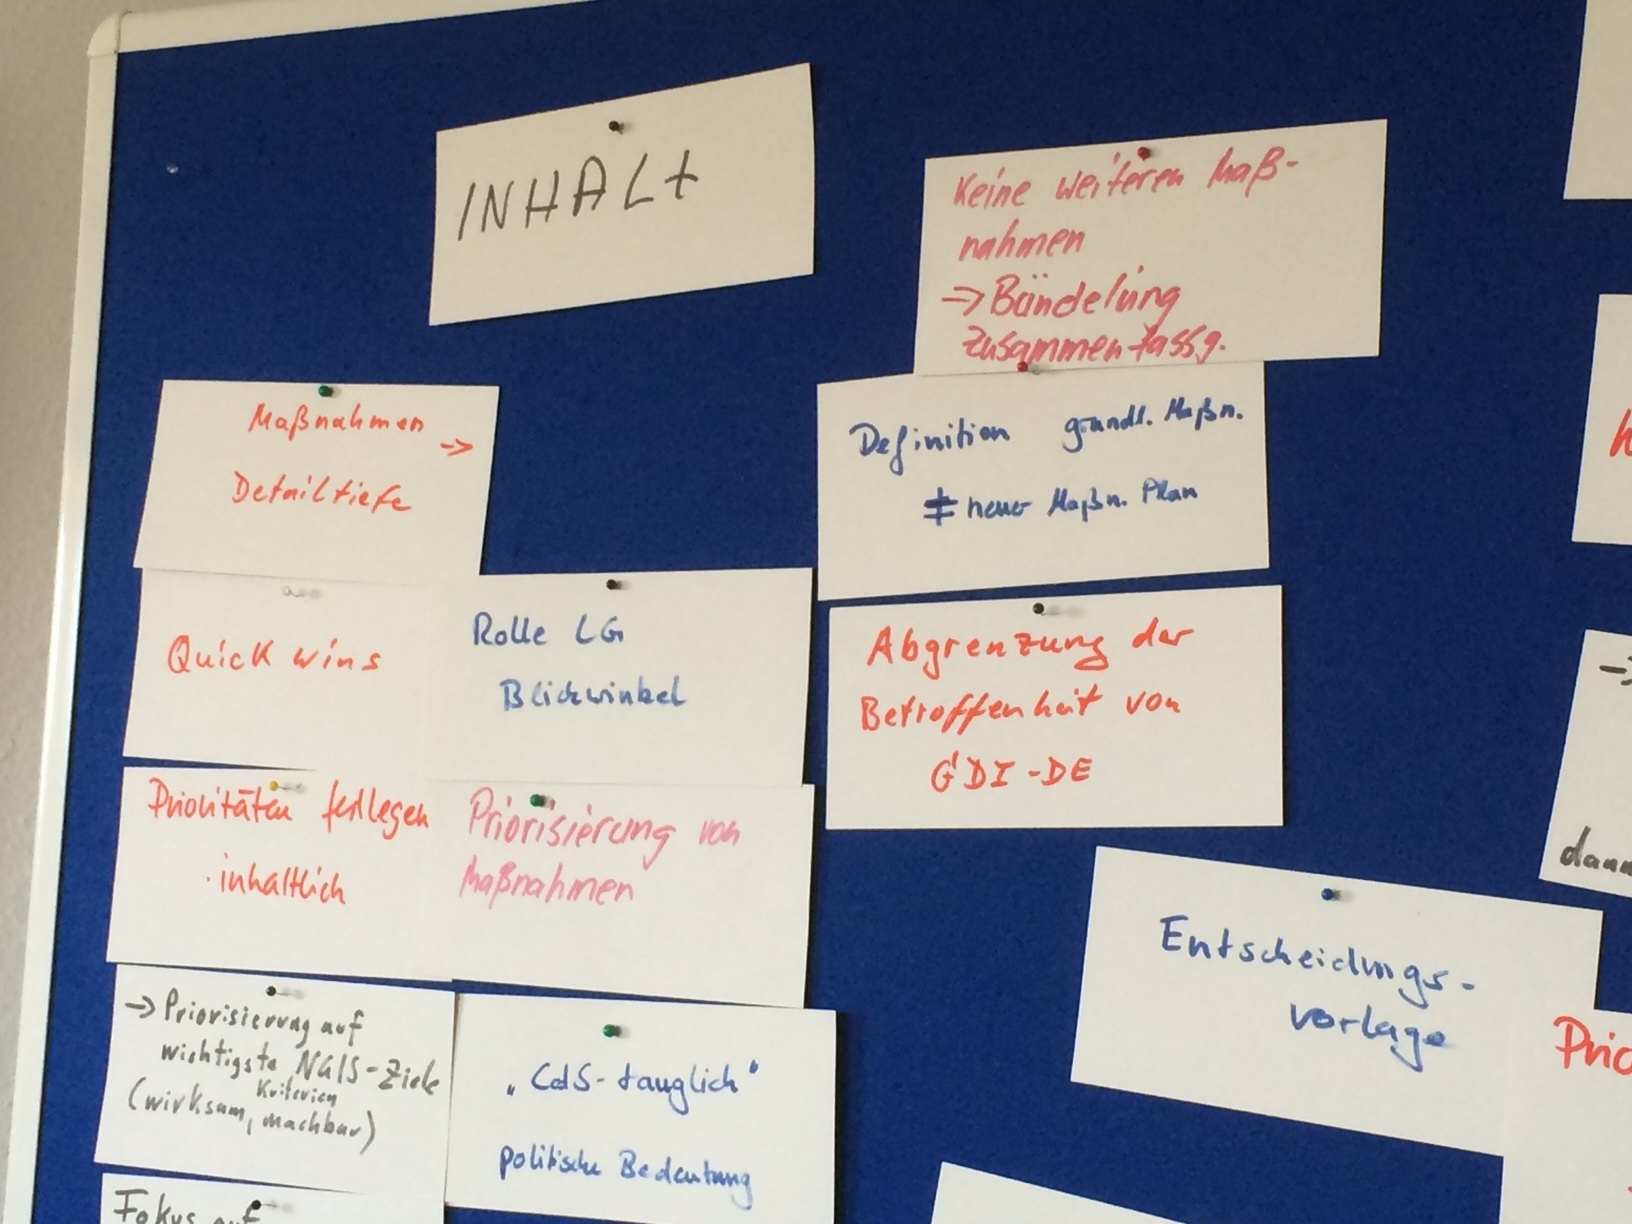 INHALT
Keine weiteren Maß-
nahmen
=> Bündelung
Zusammenfassg.
Maßnahmen ->
Detailtiefe
Definition grundl. Maßn.
≠ neuer Maßn. Plan
Quick wins
Rolle LG
Blickwinkel
Abgrenzung der
Betroffenheit von
GDI-DE
Prioritäten festlegen
· inhaltlich
Priorisierung von
Maßnahmen
Entscheidungs-
vorlage
-> Priorisierung auf
wichtigste NGIS-Ziele
Kriterien
(wirksam, machbar)
„CdS-tauglich"
politische Bedeutung
Fokus auf
->
dann
Prio